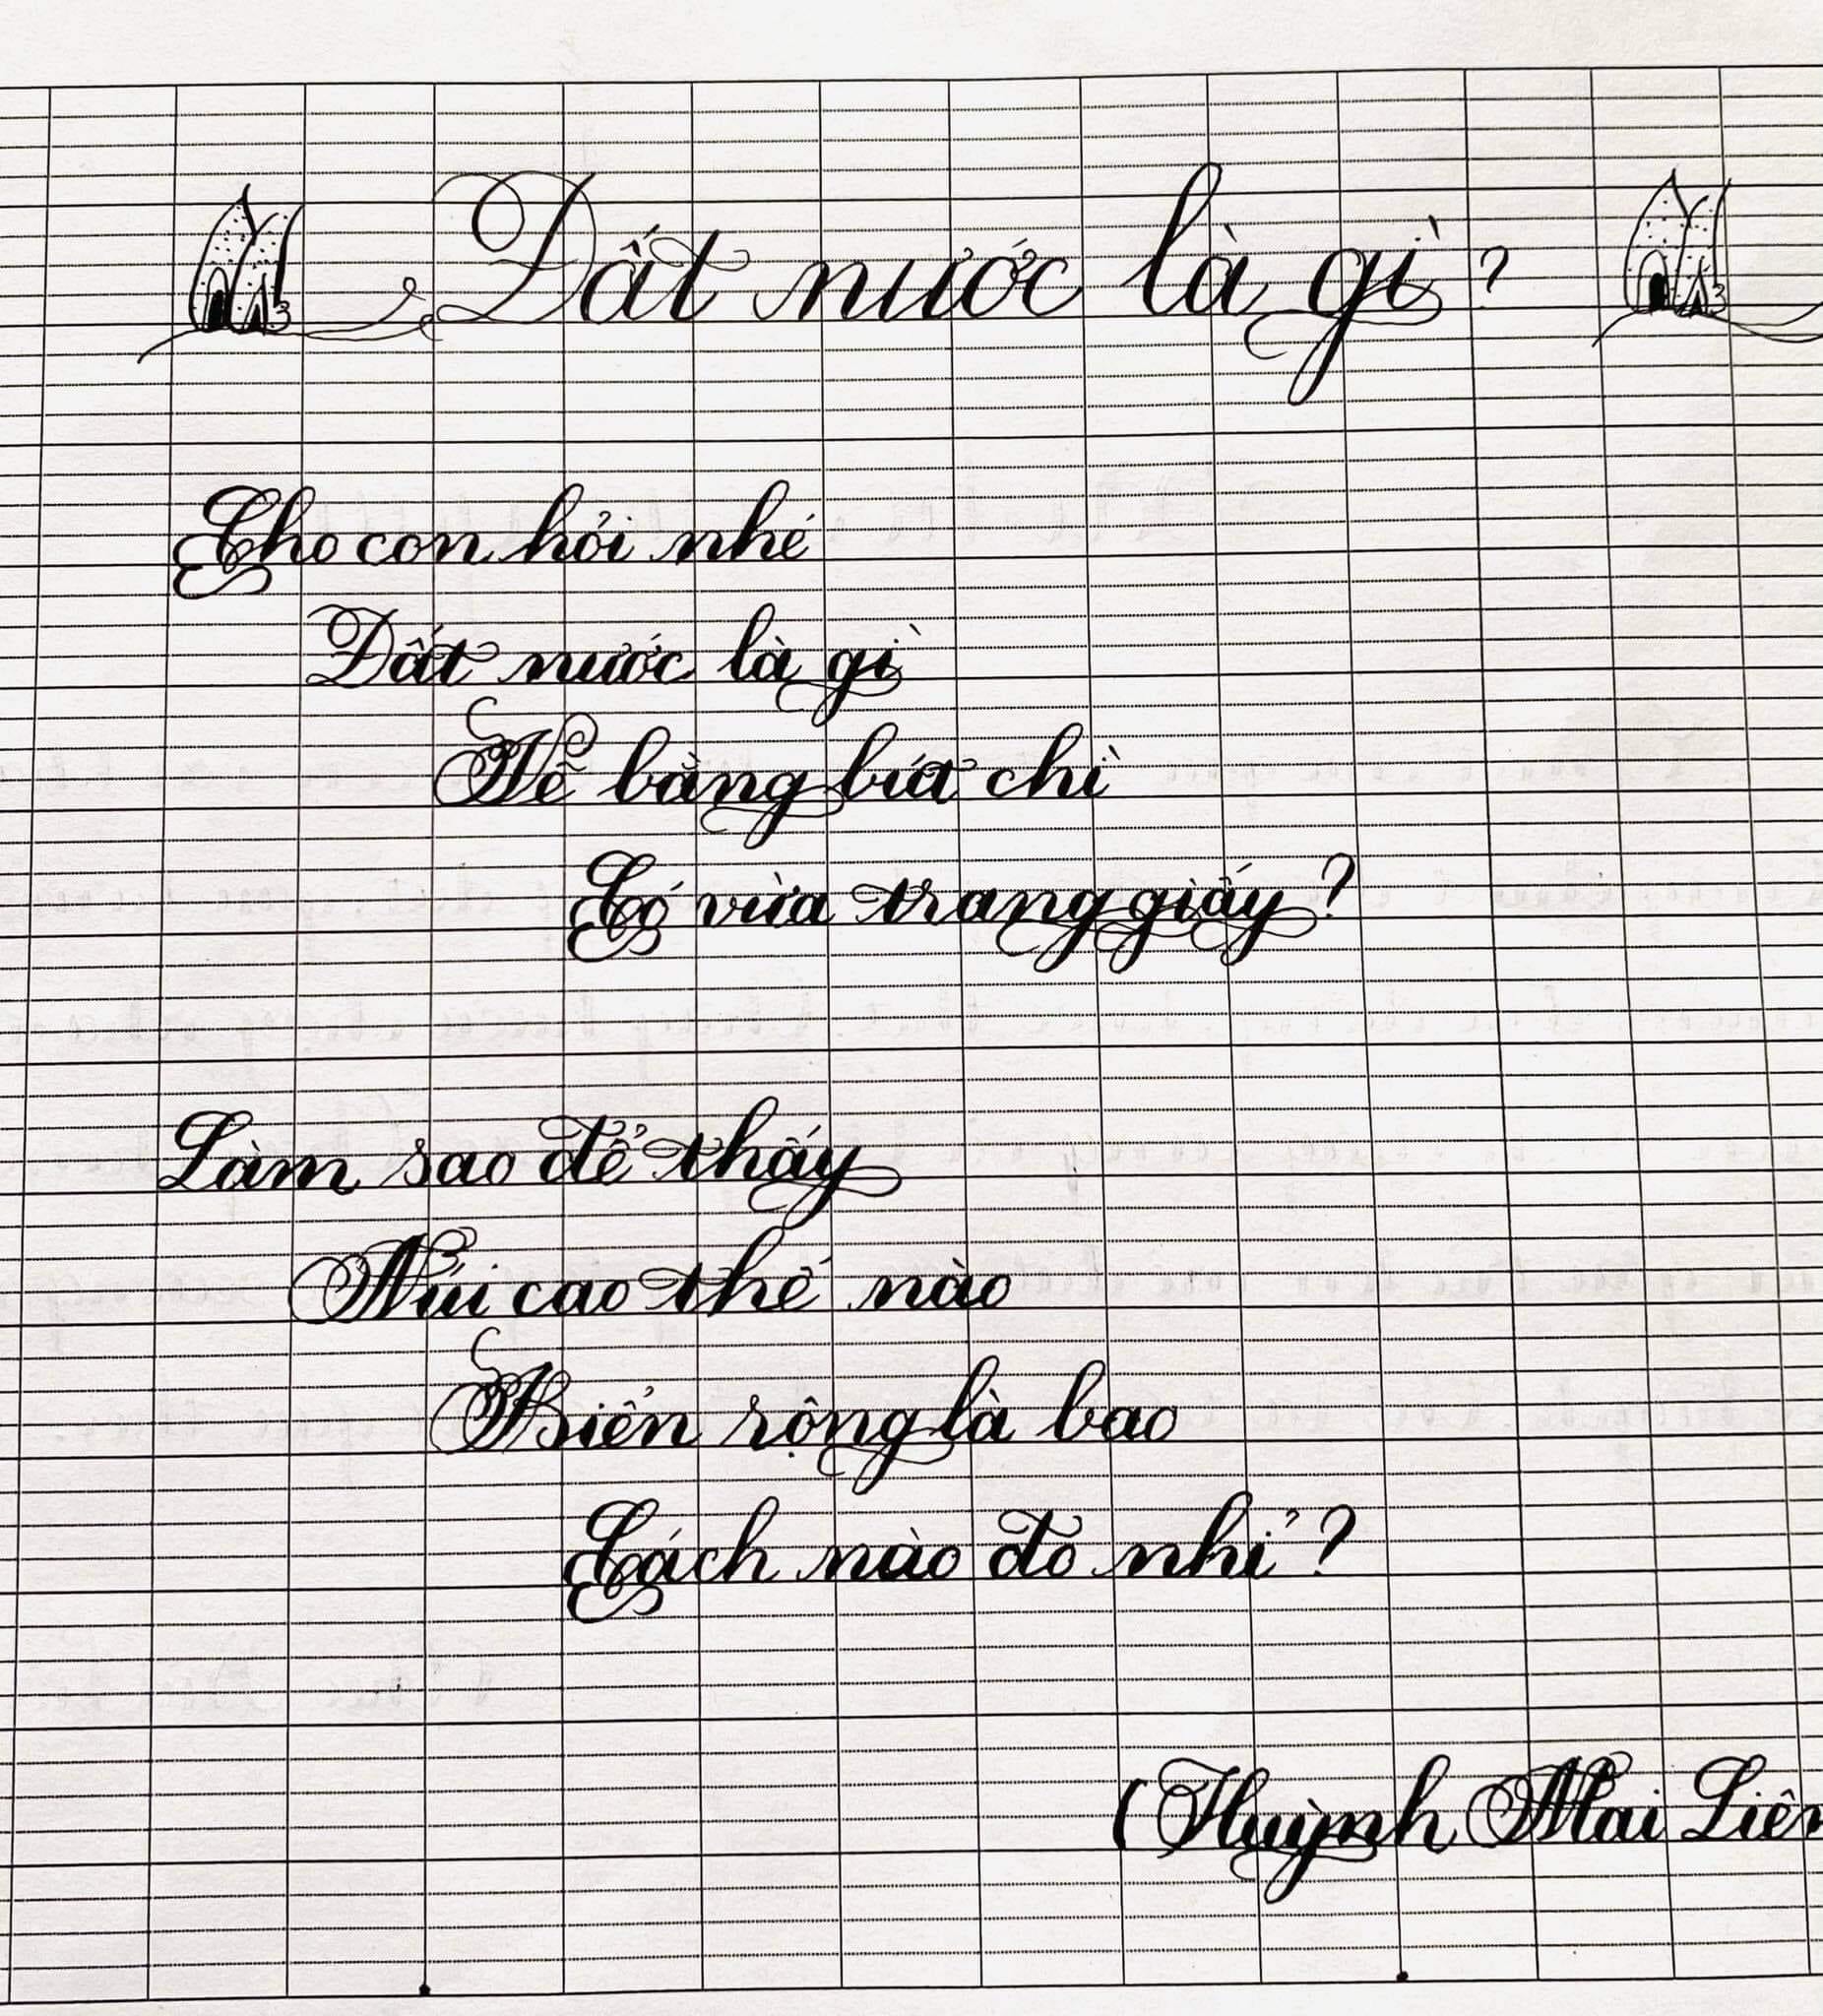 Đất nước là gì?
Cho con hỏi nhé
Đất nước là gì
Vẽ bằng bút chì
Có vừa trang giấy?
Làm sao để thấy
Núi cao thế nào
Biển rộng là bao
Cách nào đo nhỉ?
(Huỳnh Mai Liên